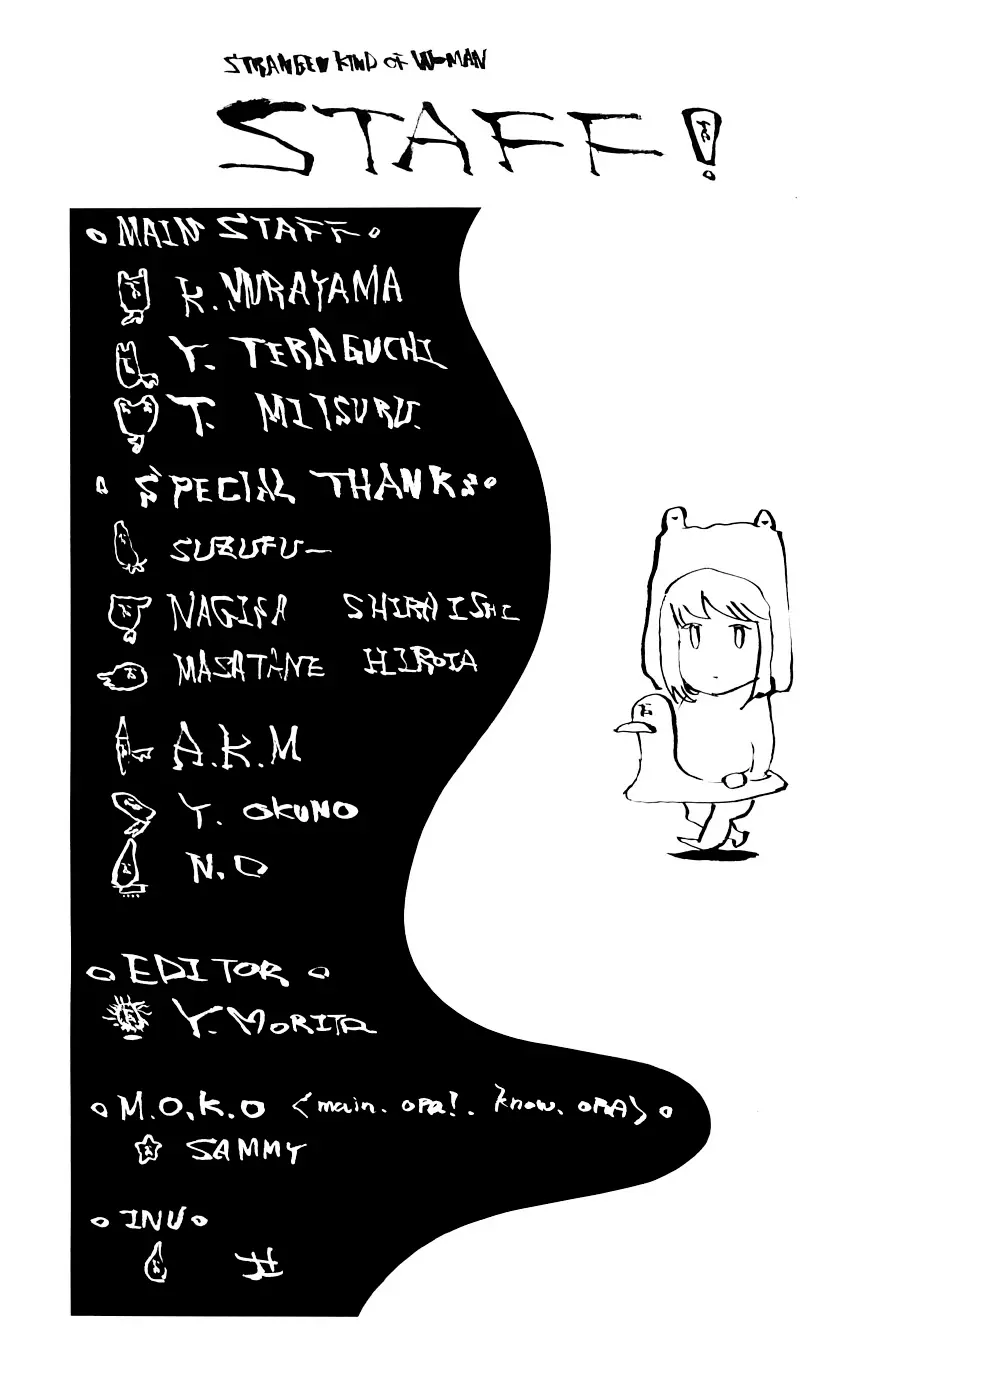 STRANGE KIND OF WOMAN
STAFF!
MAIN STAFF
K. MURAYAMA
Y. TERAGUCHI
T. MITSURU.
SPECIAL THANKS
SUZUFU—
NAGISA SHIRAISHI
MASATANE HIROTA
A.K.M
Y. OKUNO
N.O
EDITOR
Y. MORITA
M.O.K.O <main. opa!. know. OPA>
SAMMY
INU
井